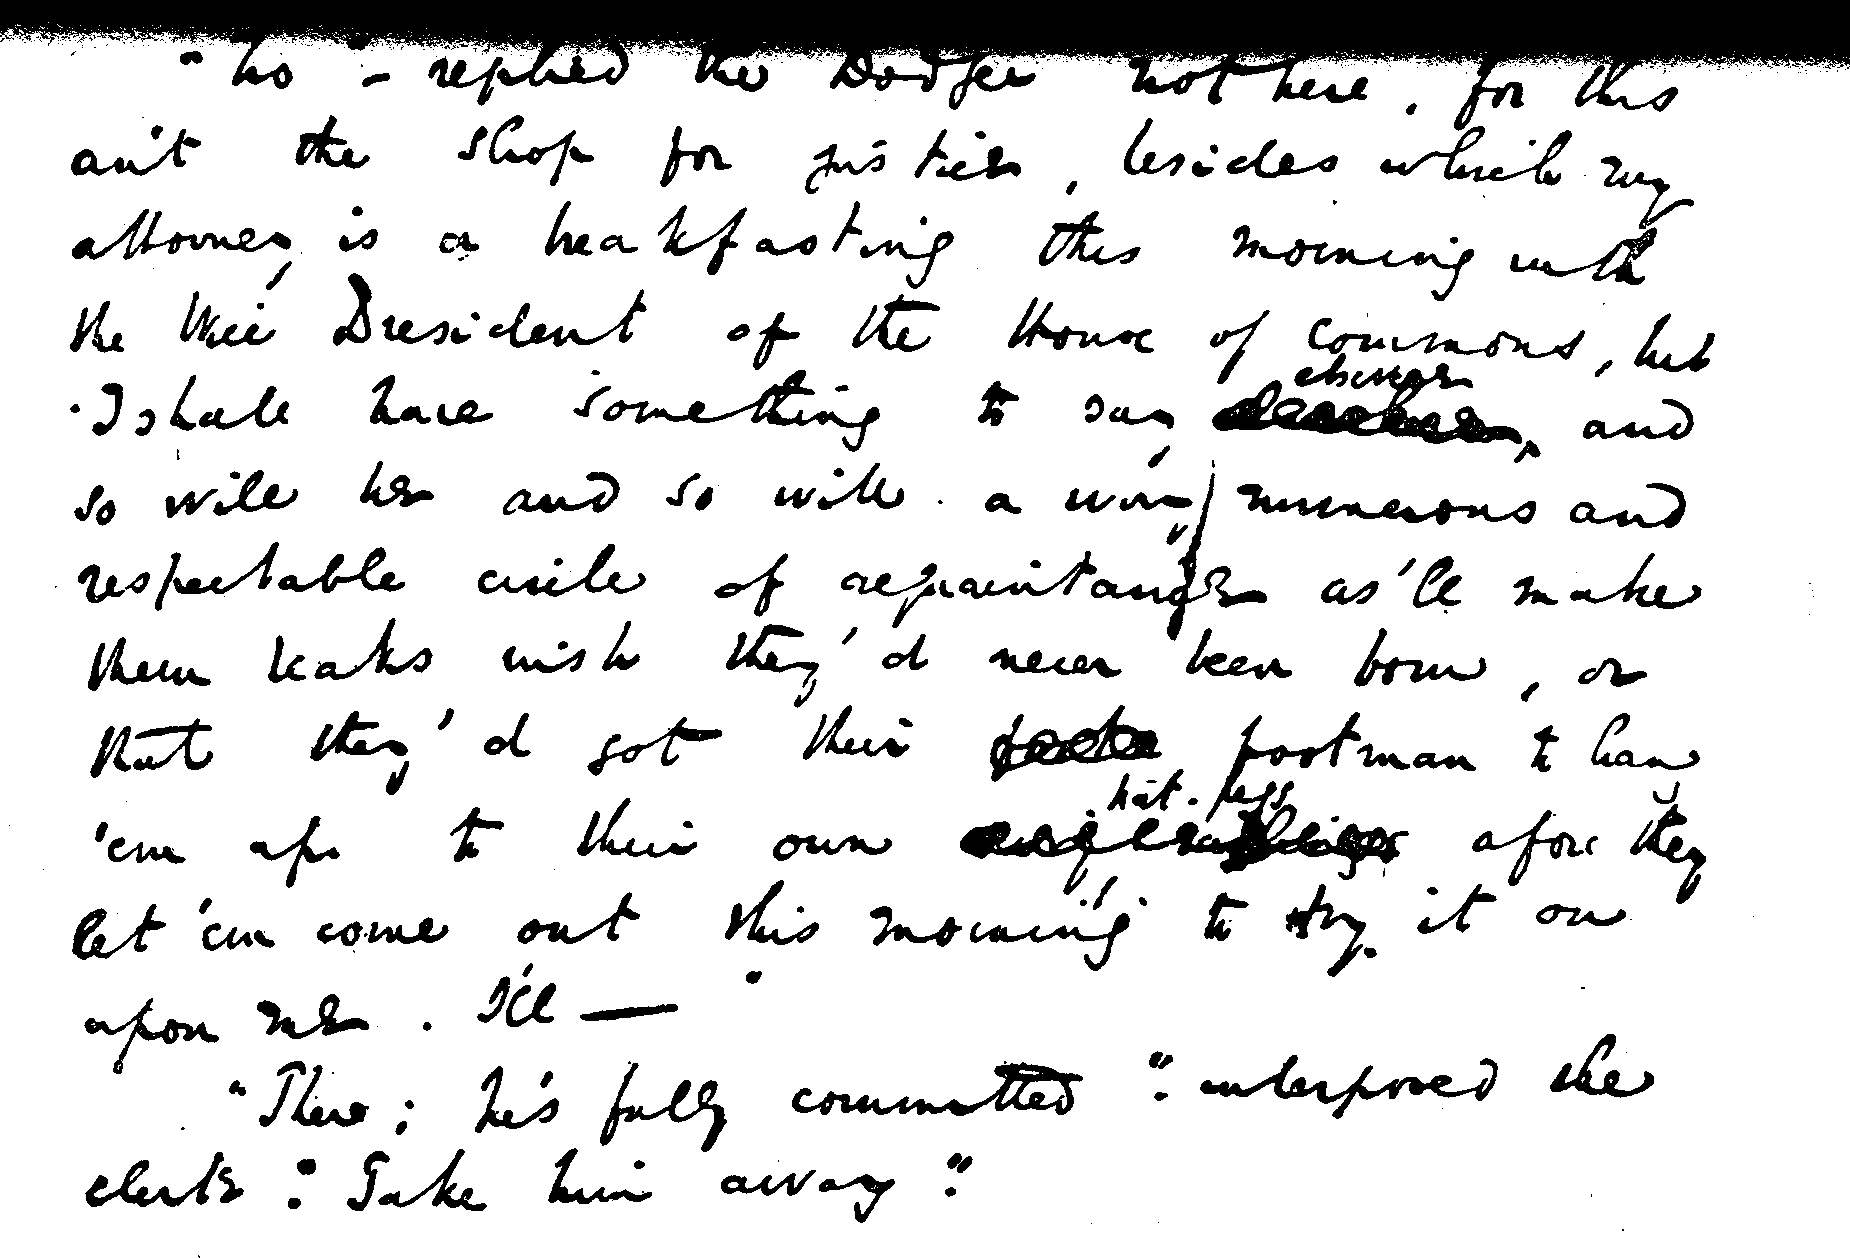 "No" - replied the Dodger not here, for this
ain't the shop for justice, besides which my
attorney is a breakfasting this morning with
the Wice President of the House of Commons, but
I shall have something to say elsewhere, and
so will he and so will a wery numerous and
respectable circle of acquaintance as'll make
them beaks wish they'd never been born, or
that they'd got their footman to hang
'em up to their own hat-pegs afore they
let 'em come out this morning to try it on
upon me. I'll —"
"There; he's fully committed". interposed the
clerk: "Take him away".